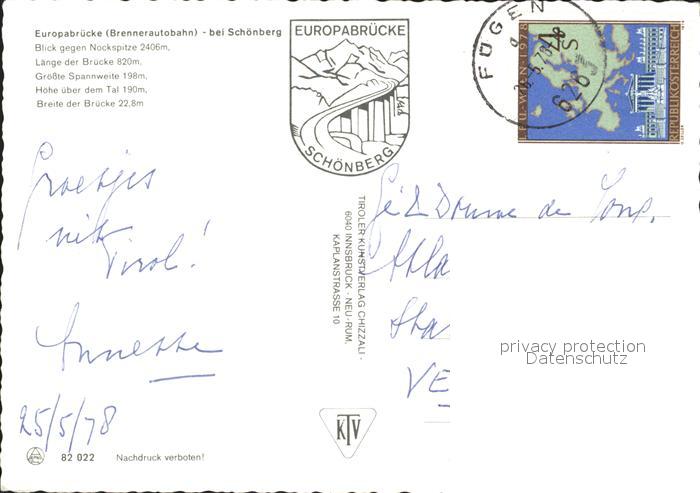 Europabrücke (Brennerautobahn) - bei Schönberg
Blick gegen Nockspitze 2406m,
Länge der Brücke 820m,
Größte Spannweite 198m,
Höhe über dem Tal 190m,
Breite der Brücke 22,8m
EUROPABRÜCKE
SCHÖNBERG
FÜGEN
I.F.U.-WIEN-1978
S4
REPUBLIK ÖSTERREICH
Groetjes
uit
Tirol!
Annette
25/5/78
TIROLER KUNSTVERLAG CHIZZALI -
6040 INNSBRUCK - NEU-RUM,
KAPLANSTRASSE 10
de
VE
privacy protection
Datenschutz
KTV
82 022 Nachdruck verboten!